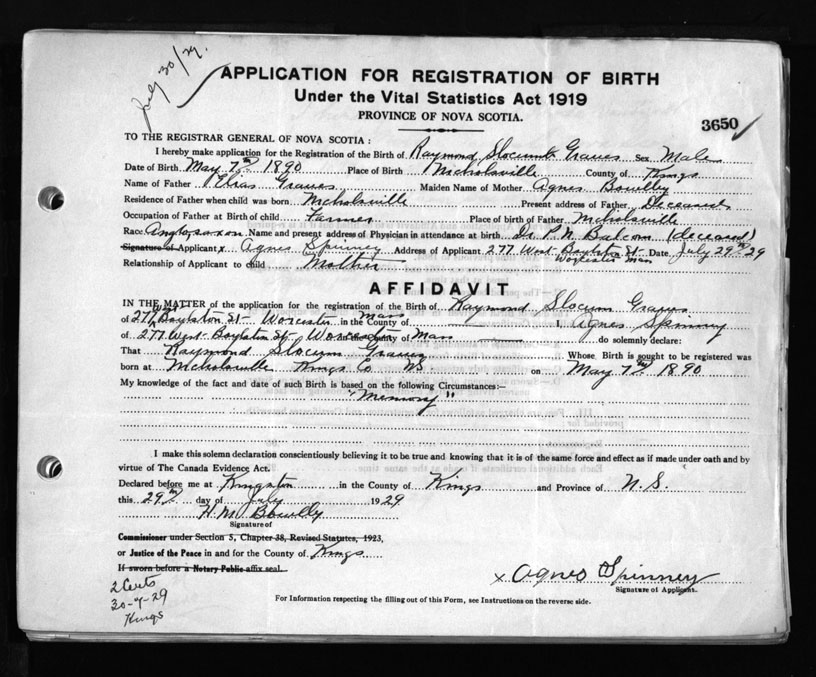 July 30/29.
APPLICATION FOR REGISTRATION OF BIRTH
Under the Vital Statistics Act 1919
PROVINCE OF NOVA SCOTIA.
3650
TO THE REGISTRAR GENERAL OF NOVA SCOTIA:
I hereby make application for the Registration of the Birth of Raymond Slocumb Graves Sex Male
Date of Birth May 7th 1890 Place of Birth Nicholsville County of Kings
Name of Father Elias Graves Maiden Name of Mother Agnes Bowlby
Residence of Father when child was born Nicholsville Present address of Father Deceased
Occupation of Father at Birth of child Farmer Place of birth of Father Nicholsville
Race Anglosaxon Name and present address of Physician in attendance at birth Dr. P. N. Balcom (deceased)
Signature of Applicant x Agnes Spinney Address of Applicant 277 West Boylston St Date July 29th 29
Worcester Mass
Relationship of Applicant to child Mother
AFFIDAVIT
IN THE MATTER of the application for the registration of the Birth of Raymond Slocum Graves
of 277 West Boylston St Worcester in the County of Mass I, Agnes Spinney
of 277 West Boylston St Worcester in the County of Mass do solemnly declare:
That Raymond Slocum Graves Whose Birth is sought to be registered was
born at Nicholsville Kings Co NS on May 7th 1890
My knowledge of the fact and date of such Birth is based on the following Circumstances:—
"Memory"
I make this solemn declaration conscientiously believing it to be true and knowing that it is of the same force and effect as if made under oath and by
virtue of The Canada Evidence Act.
Declared before me at Kingston in the County of Kings and Province of N. S.
this 29th day of July 1929
H. M. Bowlby
Signature of
Commissioner under Section 5, Chapter 38, Revised Statutes, 1923,
or Justice of the Peace in and for the County of Kings
If sworn before a Notary Public affix seal.
x Agnes Spinney
Signature of Applicant.
2 Certs
30-7-29
Kings
For Information respecting the filling out of this Form, see Instructions on the reverse side.